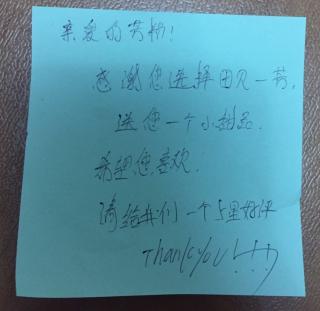 亲爱的芳粉!
感谢您选择田贝一芳,
送您一个小甜品.
希望您喜欢.
请给我们一个5星好评
Thank you!!!